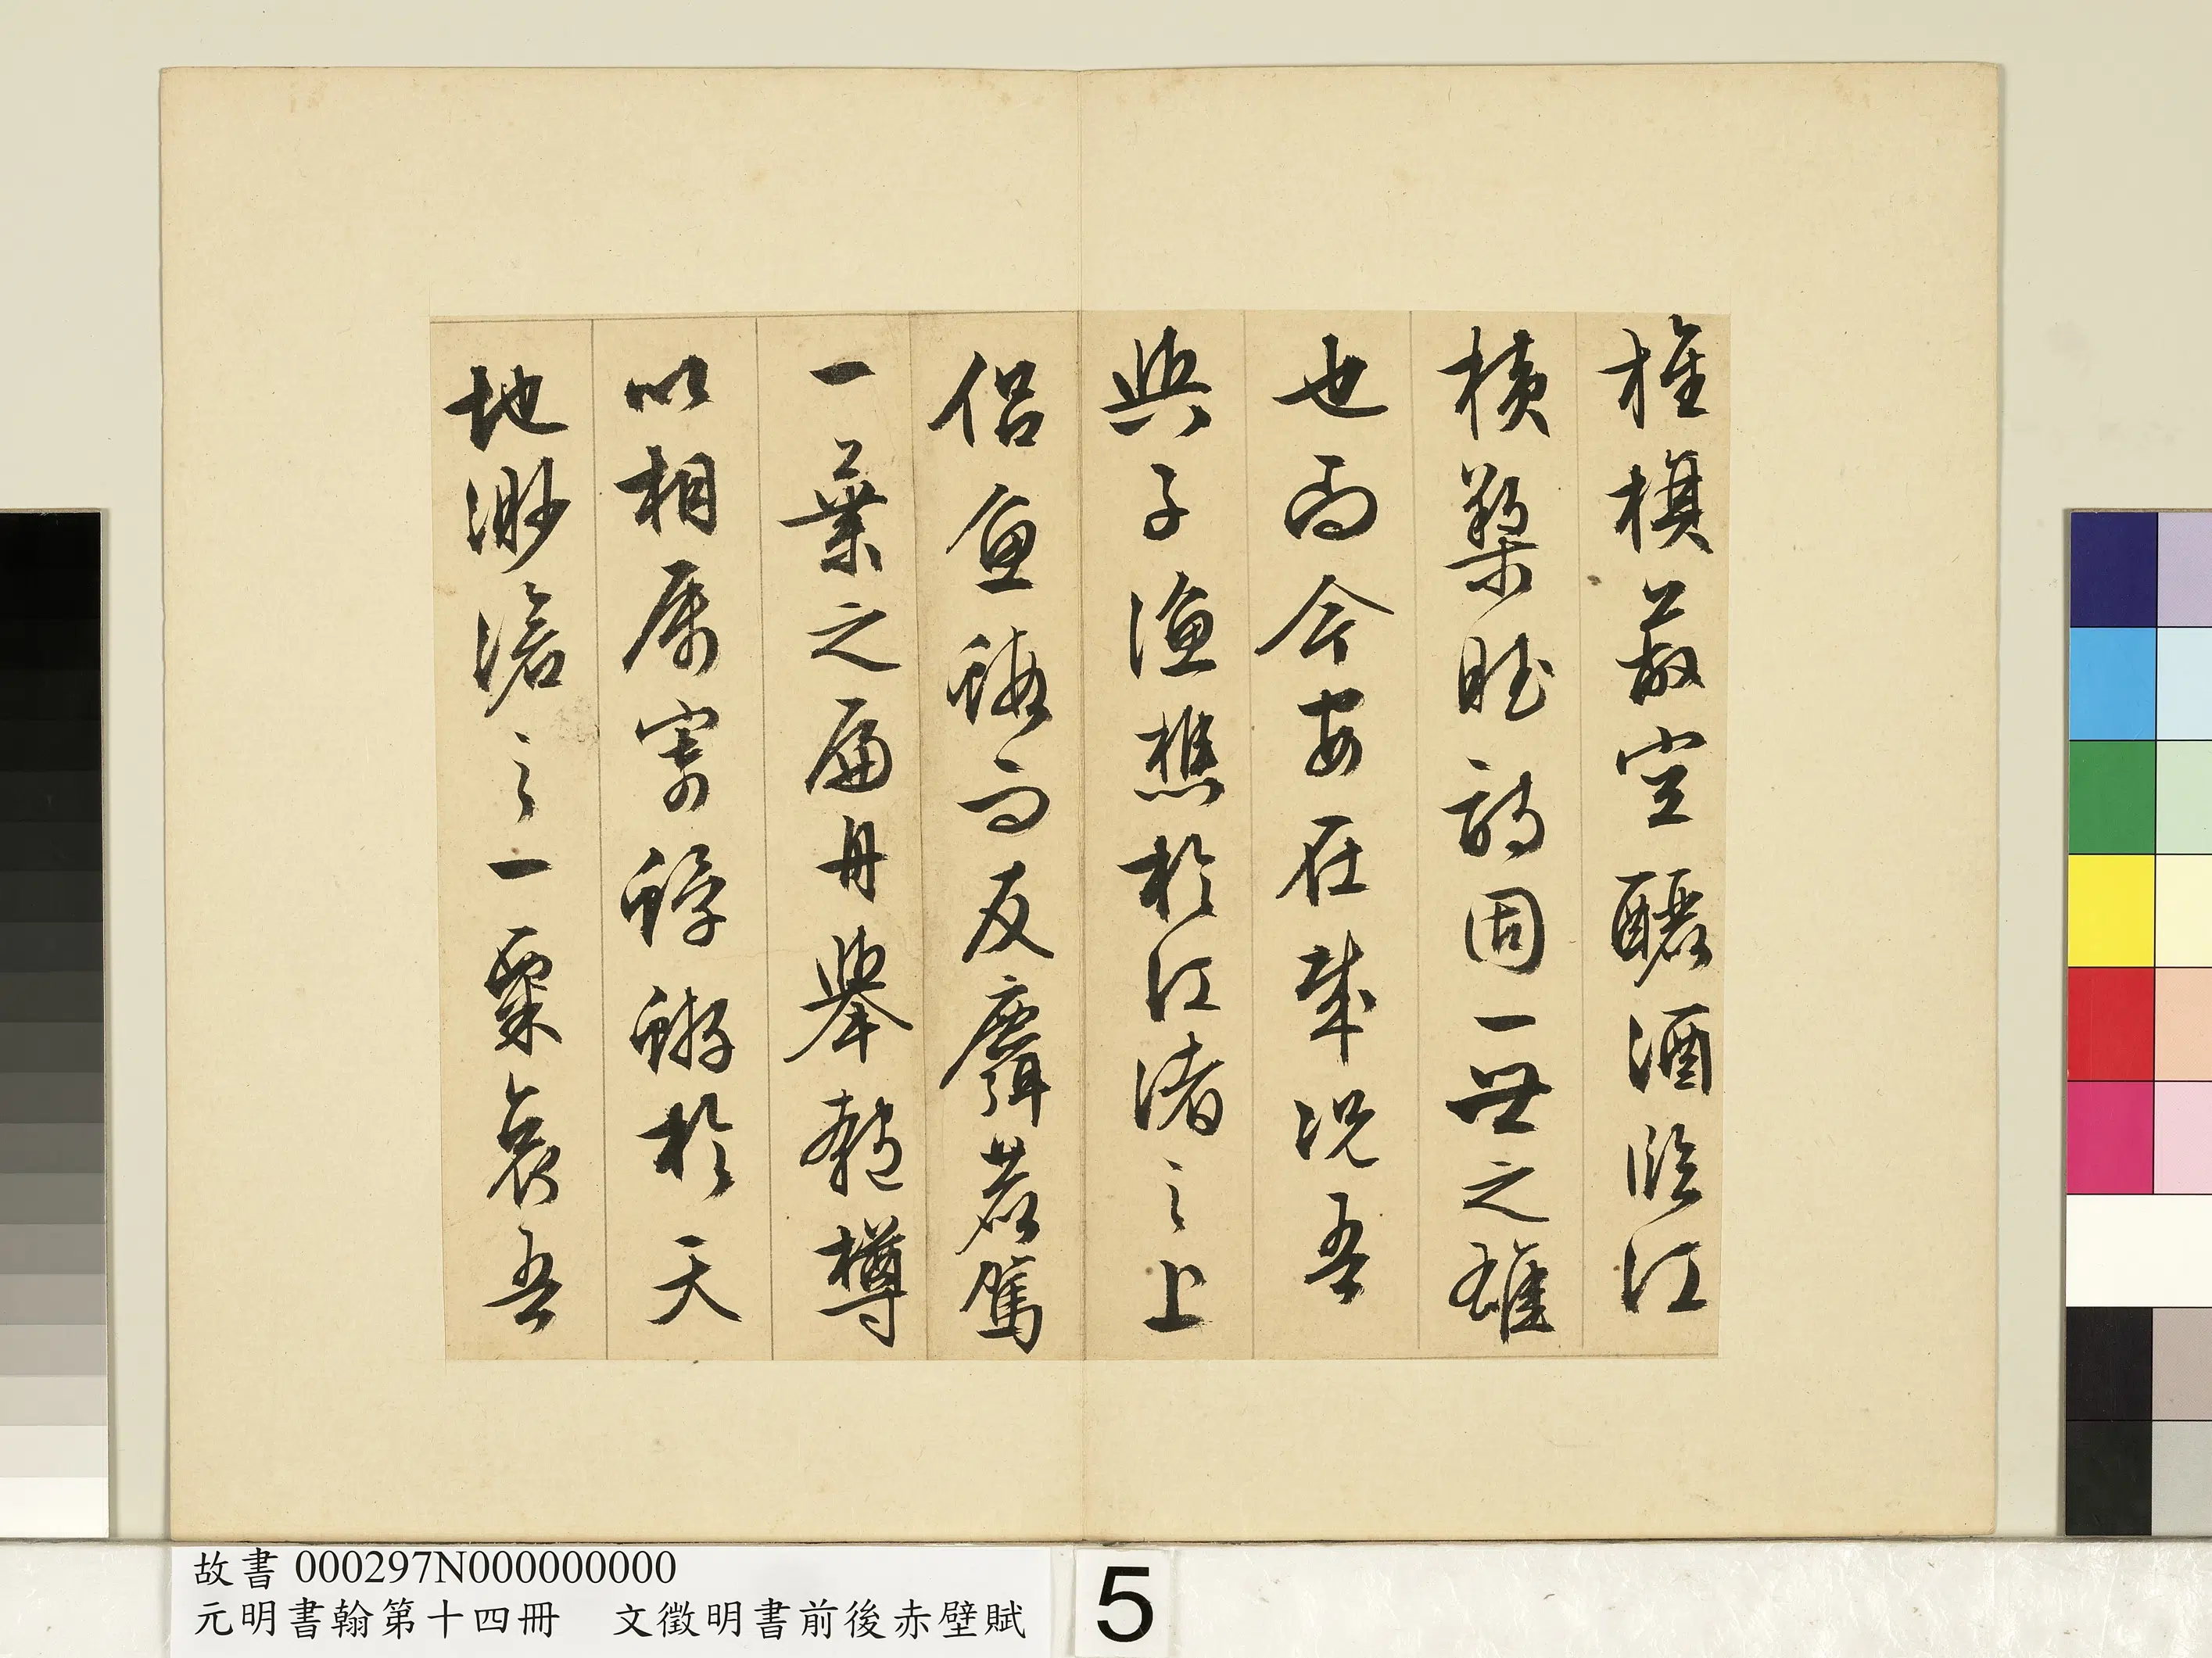 旌旗蔽空釃酒臨江
橫槊賦詩固一世之雄
也而今安在哉況吾
與子漁樵於江渚之上
侶魚蝦而友麛鹿駕
一葉之扁舟舉匏樽
以相屬寄蜉蝣於天
地渺滄之一粟哀吾
故書 000297N000000000
元明書翰第十四冊　文徵明書前後赤壁賦
5